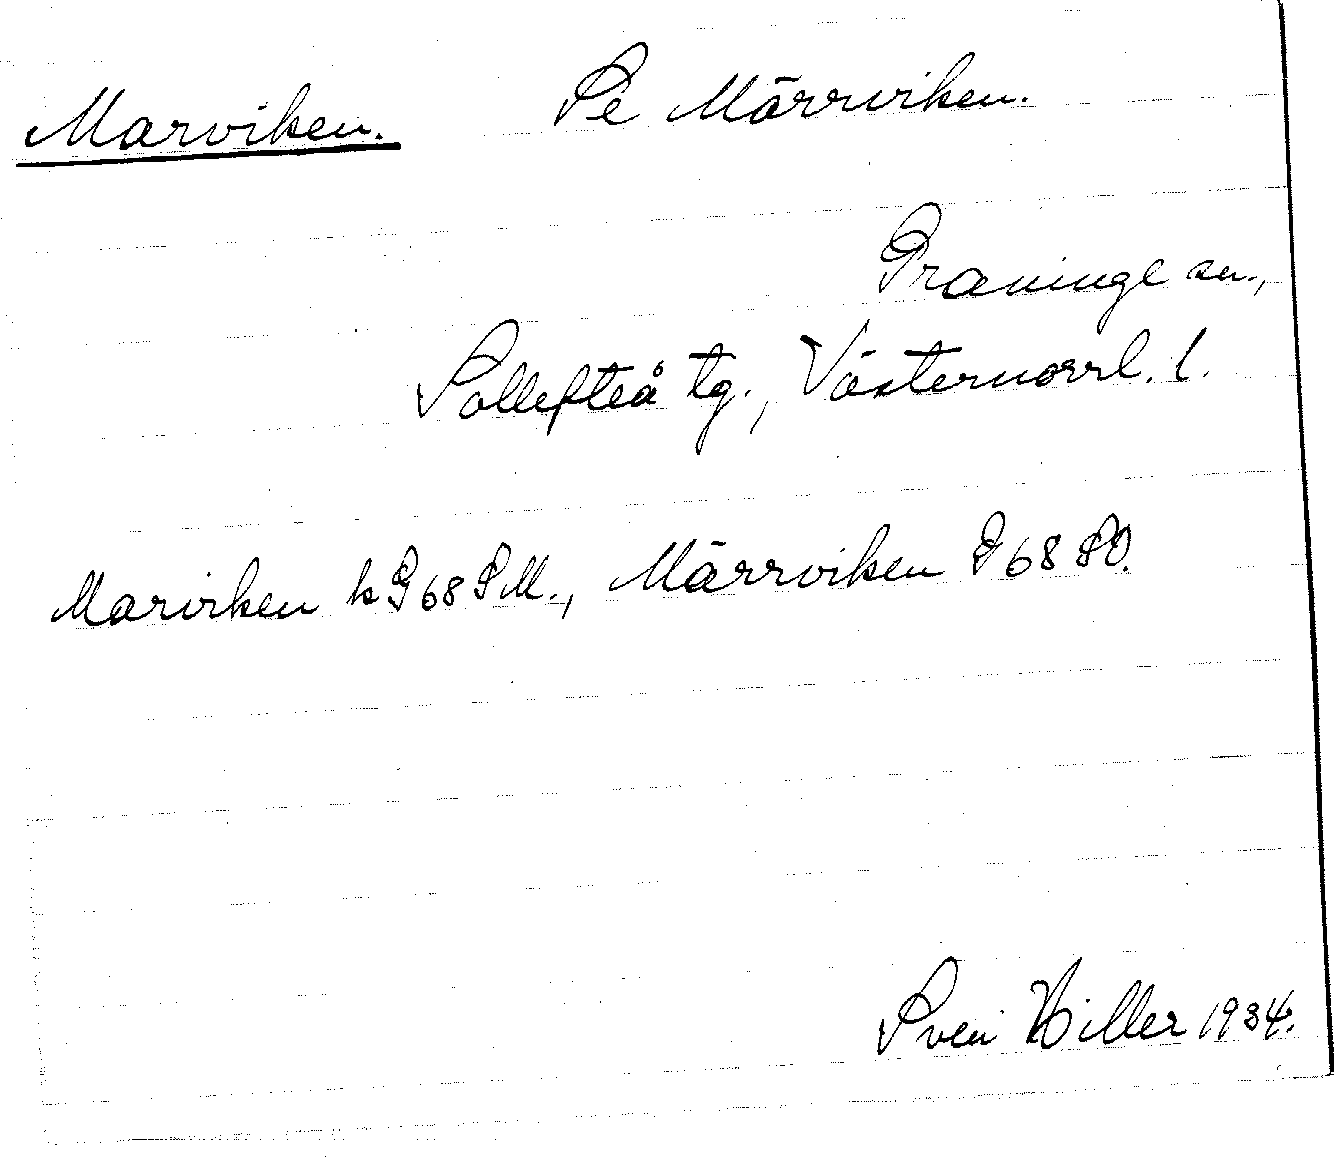 Marviken. Se Märrviken.
Graninge sn.,
Sollefteå tg., Västernorrl. l.
Marviken k G68 SM., Märrviken G68 SO.
Sven Hiller 1934.